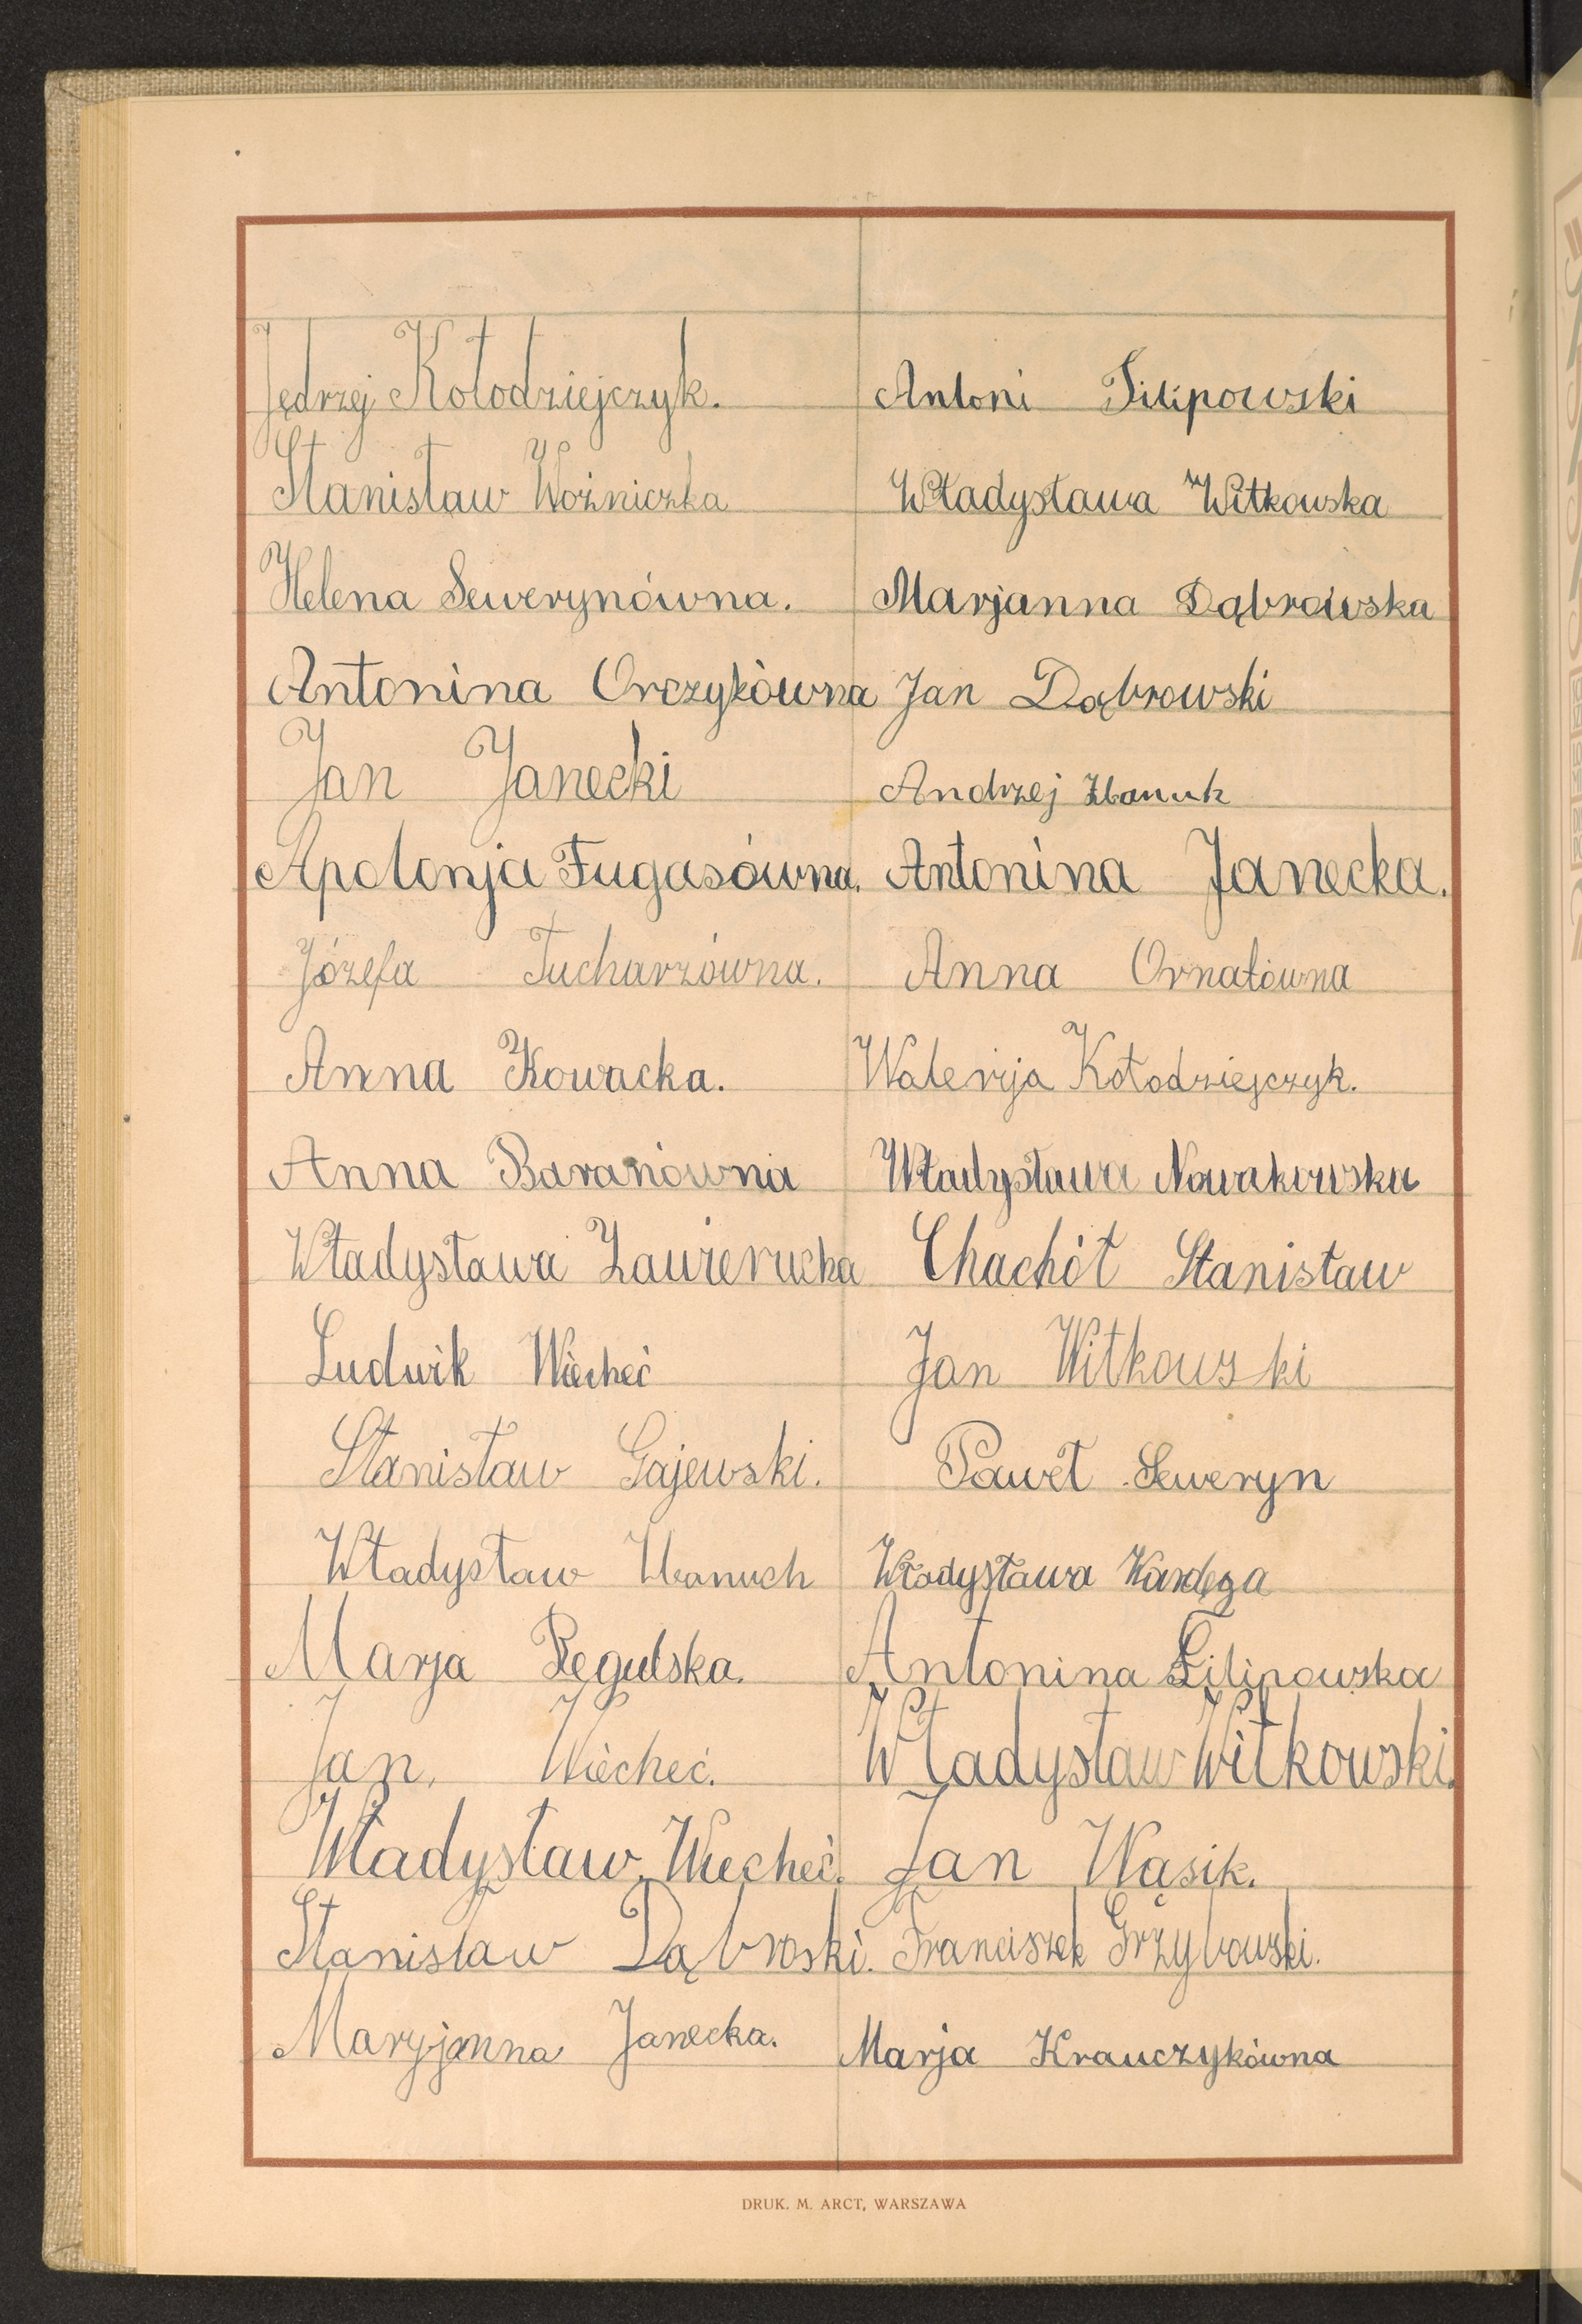 Jędrzej Kołodziejczyk. Antoni Filipowski
Stanisław Woźniczka Władysława Witkowska
Helena Sewerynówna. Marjanna Dąbrowska
Antonina Orczykówna Jan Dąbrowski
Jan Janecki Andrzej
Apolonja Fugasówna. Antonina Janecka.
Józefa Tucharzówna. Anna Ornatówna
Anna Kowacka. Walerija Kołodziejczyk.
Anna Baranówna Władysława Nowakowska
Władysława Chachół Stanisław
Ludwik Wiecheć Jan Witkowski
Stanisław Gajewski. Paweł Seweryn
Władysław Władysława Kardega
Marja Regulska. Antonina Filipowska
Jan, Wiecheć. Władysław Witkowski.
Władysław, Wiecheć. Jan Wąsik.
Stanisław Dąbroski. Franciszek Grzybowski.
Maryjanna Janecka. Marja Krauczykówna
DRUK. M. ARCT, WARSZAWA